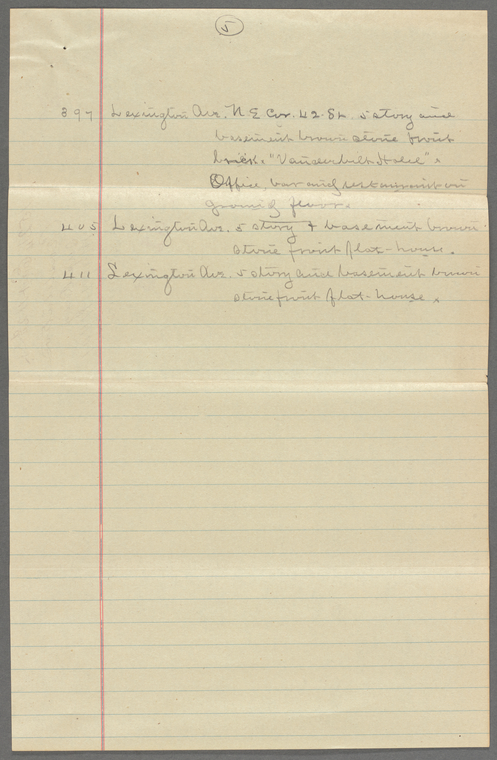 5
397 Lexington Ave. N E Cor. 42. St. 5 story and
basement brown stone front
brick. "Vanderbilt Hotel".
Office, bar and restaurant on
ground floor.
405 Lexington Ave. 5 story & basement brown
stone front flat-house.
411 Lexington Ave. 5 story and basement brown
stone front flat-house.